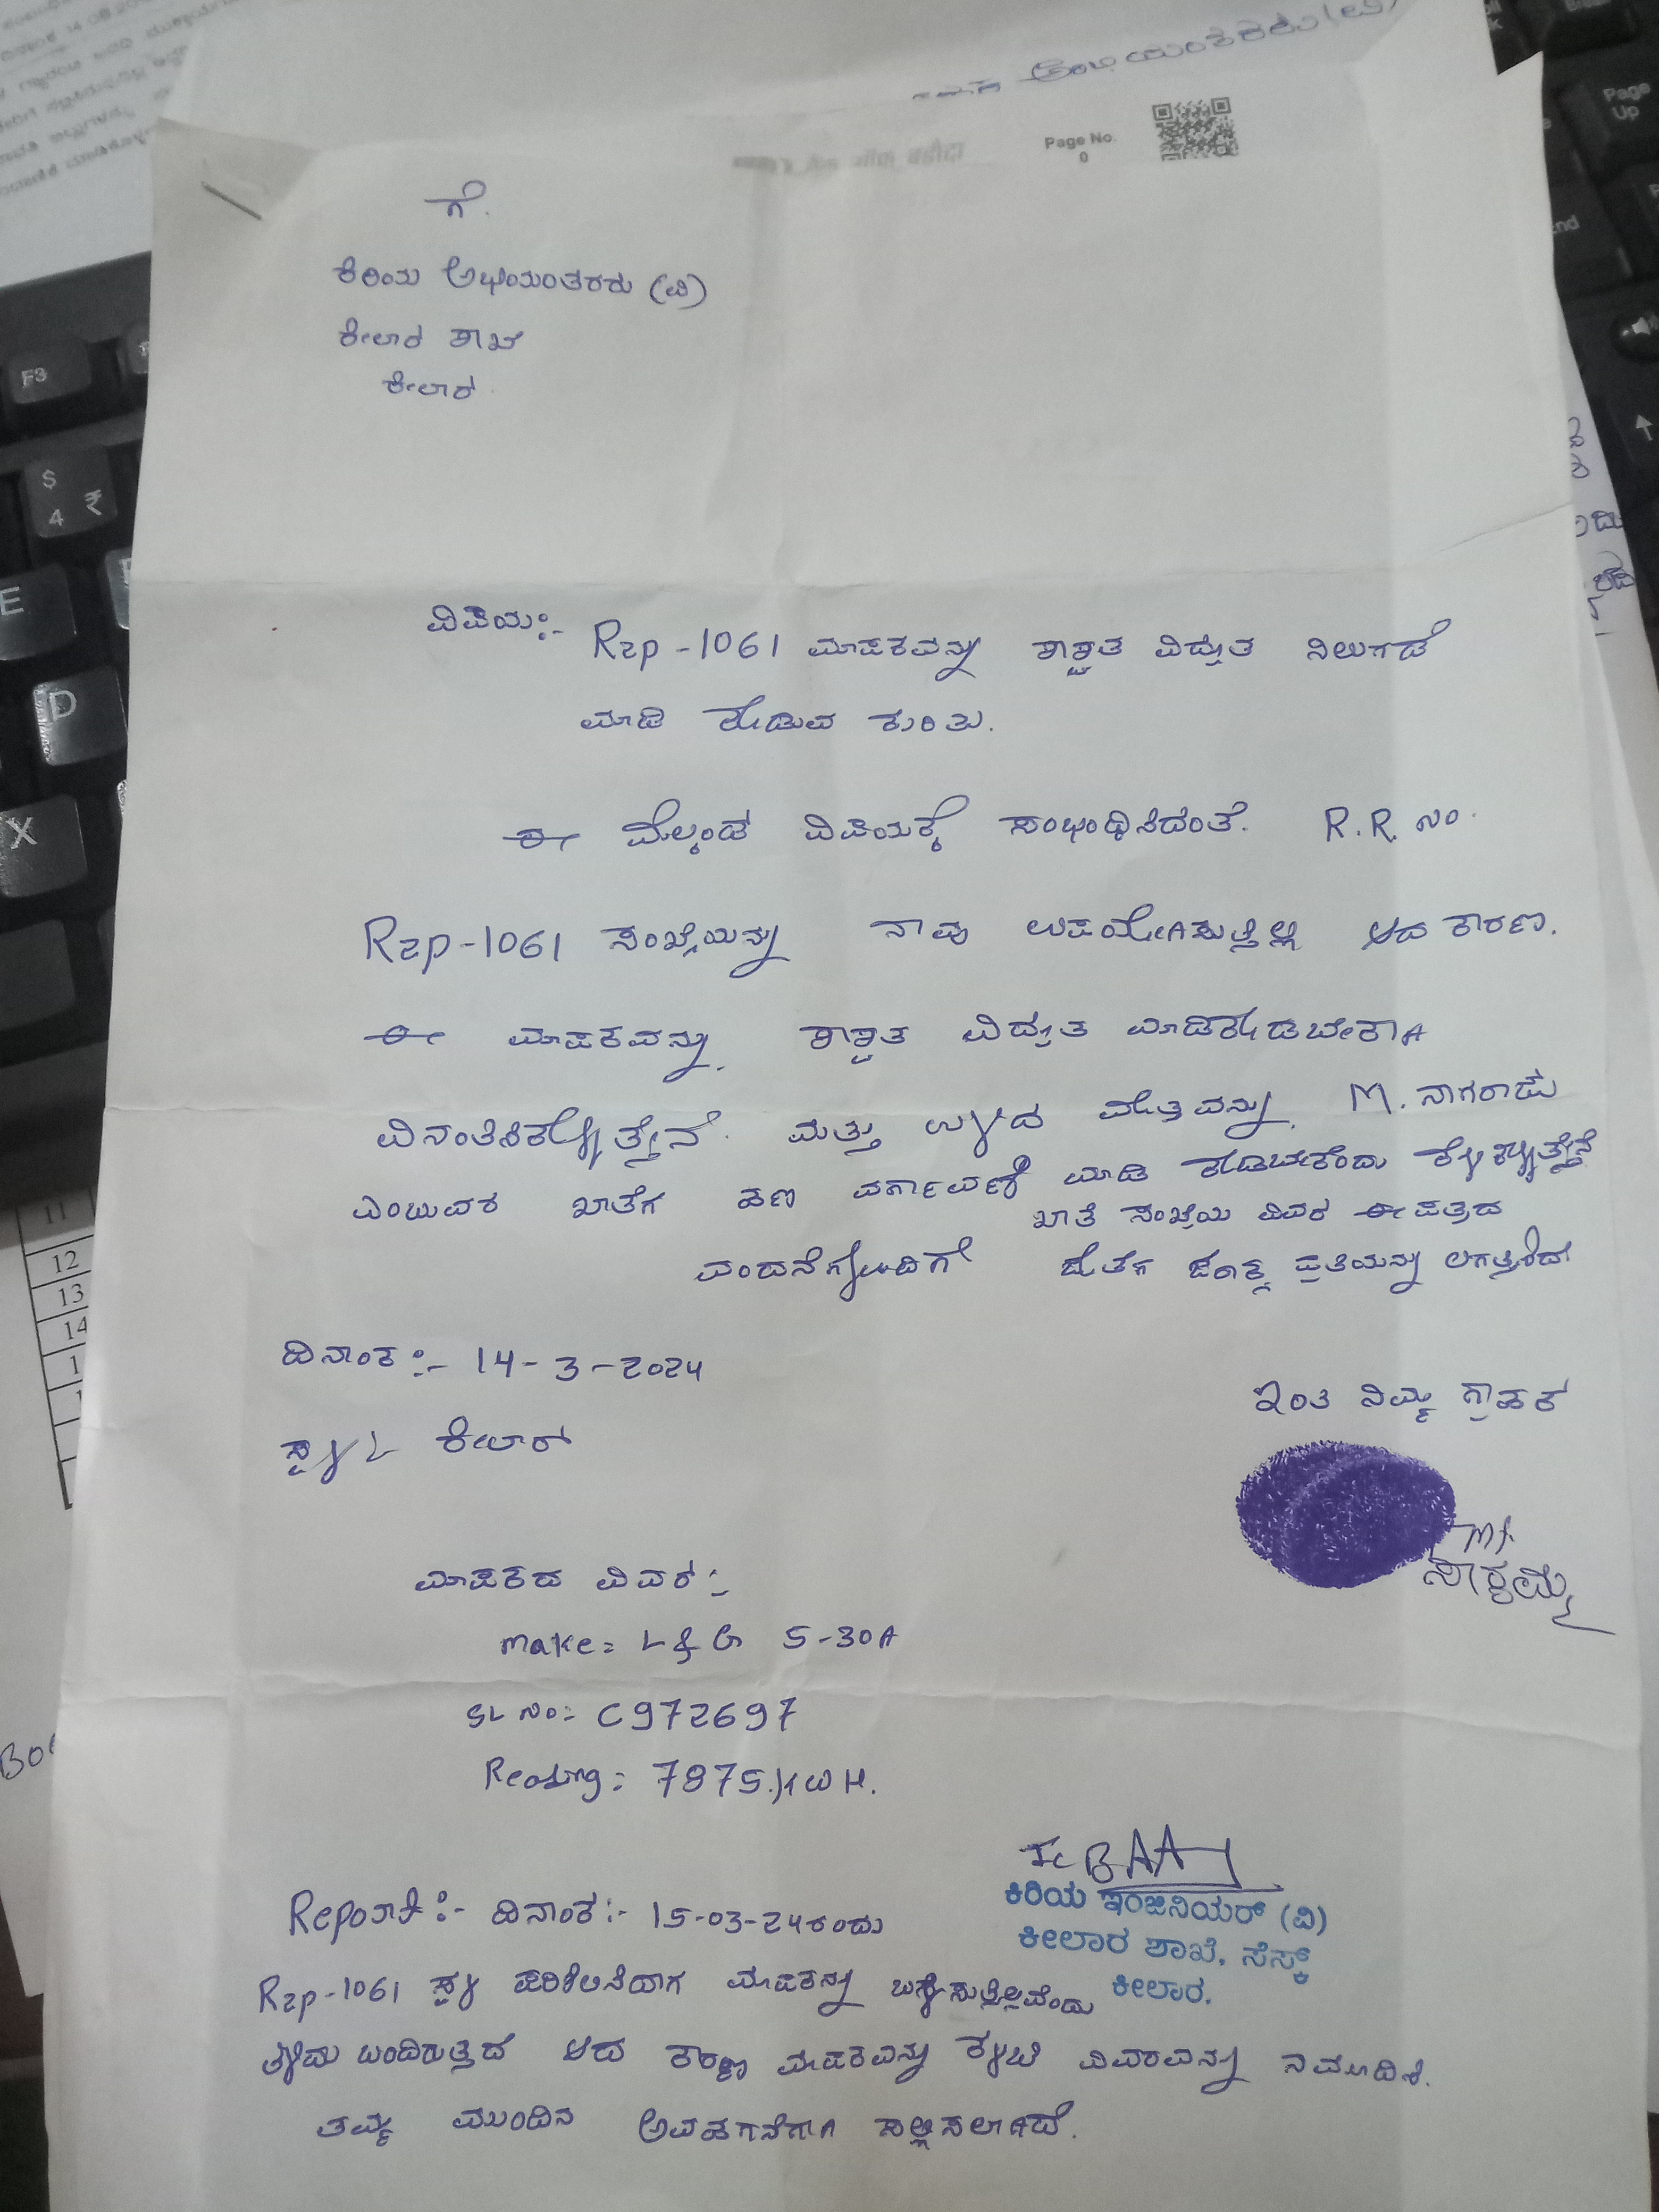 Page No.
0
ಗೆ.
ಕಿರಿಯ ಅಭಿಯಂತರರು (ವಿ)
ಕೀಲಾರ ಶಾಖೆ
ಕೀಲಾರ.
ವಿಷಯ:- Rzp-1061 ಮಾಪಕವನ್ನು ಶಾಶ್ವತ ವಿದ್ಯುತ ನಿಲುಗಡೆ
ಮಾಡಿ ಕೊಡುವ ಕುರಿತು.
ಈ ಮೇಲ್ಕಂಡ ವಿಷಯಕ್ಕೆ ಸಂಭಂಧಿಸಿದಂತೆ. R.R. ನಂ.
Rzp-1061 ಸಂಖ್ಯೆಯನ್ನು ನಾವು ಉಪಯೋಗಿಸುತ್ತಿಲ್ಲ ಆದ ಕಾರಣ.
ಈ ಮಾಪಕವನ್ನು ಶಾಶ್ವತ ವಿದ್ಯುತ ಮಾಡಿಕೊಡಬೇಕಾಗಿ
ವಿನಂತಿಸಿಕೊಳ್ಳುತ್ತೇನೆ. ಮತ್ತು ಉಳಿದ ಮೊತ್ತವನ್ನು M. ನಾಗರಾಜು
ಎಂಬುವರ ಖಾತೆಗೆ ಹಣ ವರ್ಗಾವಣೆ ಮಾಡಿ ಕೊಡಬೇಕೆಂದು ಕೇಳಿಕೊಳ್ಳುತ್ತೇನೆ
ಖಾತೆ ಸಂಖ್ಯೆಯ ವಿವರ ಈ ಪತ್ರದ
ವಂದನೆಗಳೊಂದಿಗೆ ಜೊತೆಗೆ ಜೆರಾಕ್ಸ್ ಪ್ರತಿಯನ್ನು ಲಗತ್ತಿಸಿದೆ
ದಿನಾಂಕ:- 14-3-2024
ಸ್ಥಳ :- ಕೀಲಾರ
ಇಂತಿ ನಿಮ್ಮ ಗ್ರಾಹಕ
ಮಾಪಕದ ವಿವರ:-
make= L&G 5-30A
SL No:= C972697
Reading: 7875.KWH.
ಕಿರಿಯ ಇಂಜಿನಿಯರ್ (ವಿ)
ಕೀಲಾರ ಶಾಖೆ, ಸೆಸ್ಕ್
ಕೀಲಾರ.
Report:- ದಿನಾಂಕ:- 15-03-24ರಂದು
Rzp-1061 ಸ್ಥಳ ಪರಿಶೀಲಿಸಿದಾಗ ಮಾಪಕನ್ನು ಬಳಸುತ್ತಿಲ್ಲವೆಂದು
ತಿಳಿದು ಬಂದಿರುತ್ತದೆ ಆದ ಕಾರಣ ಮಾಪಕವನ್ನು ಕಳಚಿ ವಿವರವನ್ನು ನಮೂದಿಸಿ.
ತಮ್ಮ ಮುಂದಿನ ಅವಹಗನೆಗಾಗಿ ಸಲ್ಲಿಸಲಾಗಿದೆ.